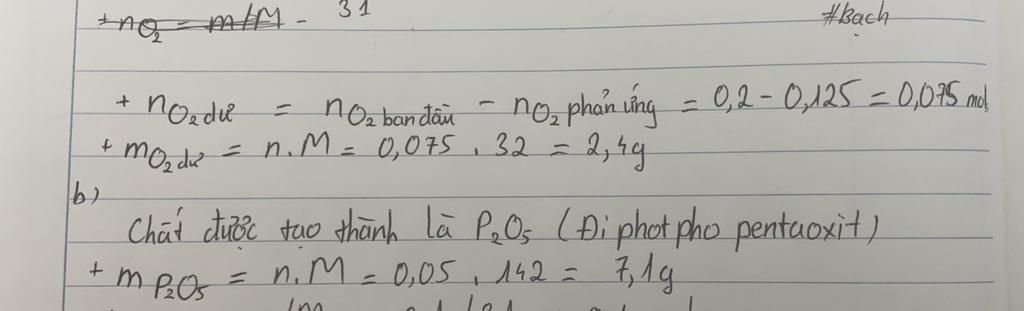 + nO₂ = m/M - 31
#Bạch
+ nO₂ dư = nO₂ ban đầu - nO₂ phản ứng = 0,2 - 0,125 = 0,075 mol
+ mO₂ dư = n.M = 0,075 . 32 = 2,4g
b)
Chất được tạo thành là P₂O₅ (Đi photpho pentaoxit)
+ m P₂O₅ = n.M = 0,05 . 142 = 7,1g